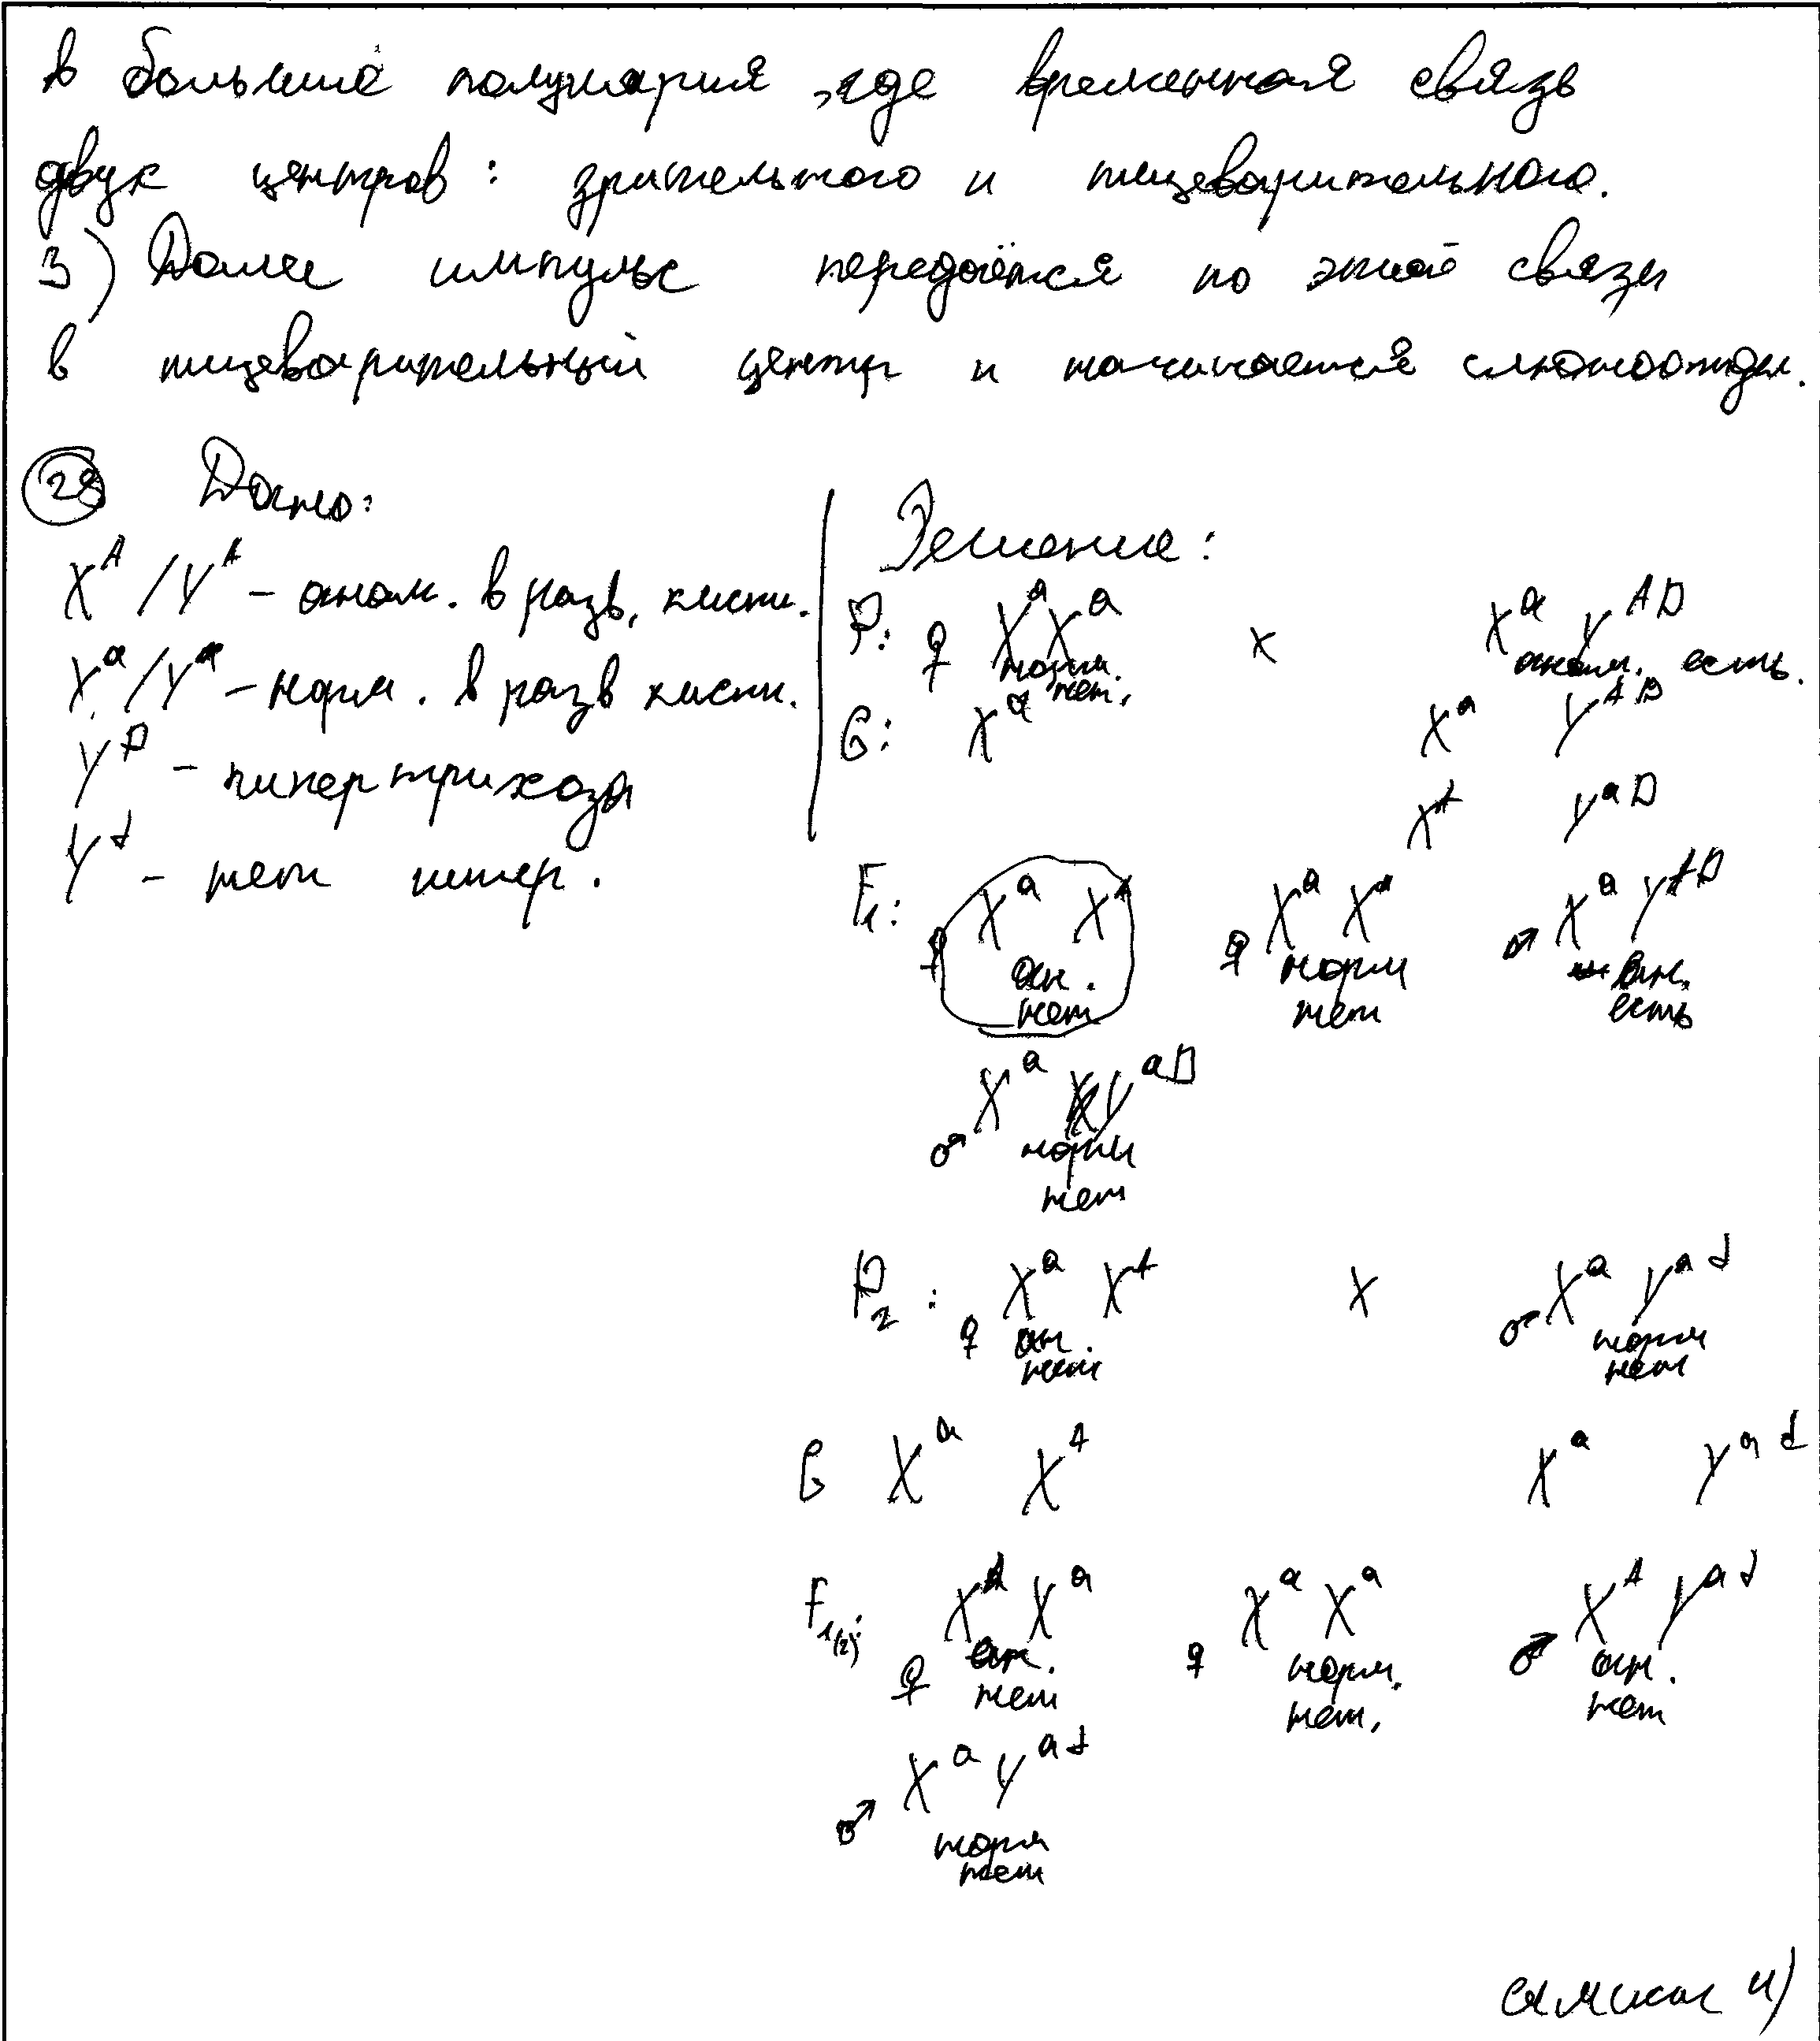 в большие полушария, где временная связь
двух центров: зрительного и пищеварительного.
3) Далее импульс передаётся по этой связи
в пищеварительный центр и начинается слюноотдел.
28 Дано:
X^A / Y^A - аном. в разв. кисти.
X^a / Y^a - норм. в разв кисти.
Y^D - гипертрихоза
Y^d - нет гипер.
Решение:
P: ♀ X^a X^a x X^a Y^AD
норм. нет. аном. есть.
G: X^a X^a Y^AD
X^A Y^aD
F1: ♀ X^a X^A ♀ X^a X^a ♂ X^a Y^AD
ан. норм ан.
нет нет есть
♂ X^a Y^aD
норм
нет
P2: ♀ X^a X^A x ♂ X^a Y^ad
ан. норм
нет нет
G X^a X^A X^a Y^ad
F1(2): ♀ X^A X^a ♀ X^a X^a ♂ X^A Y^ad
ан. норм. ан.
нет нет. нет
♂ X^a Y^ad
норм
нет